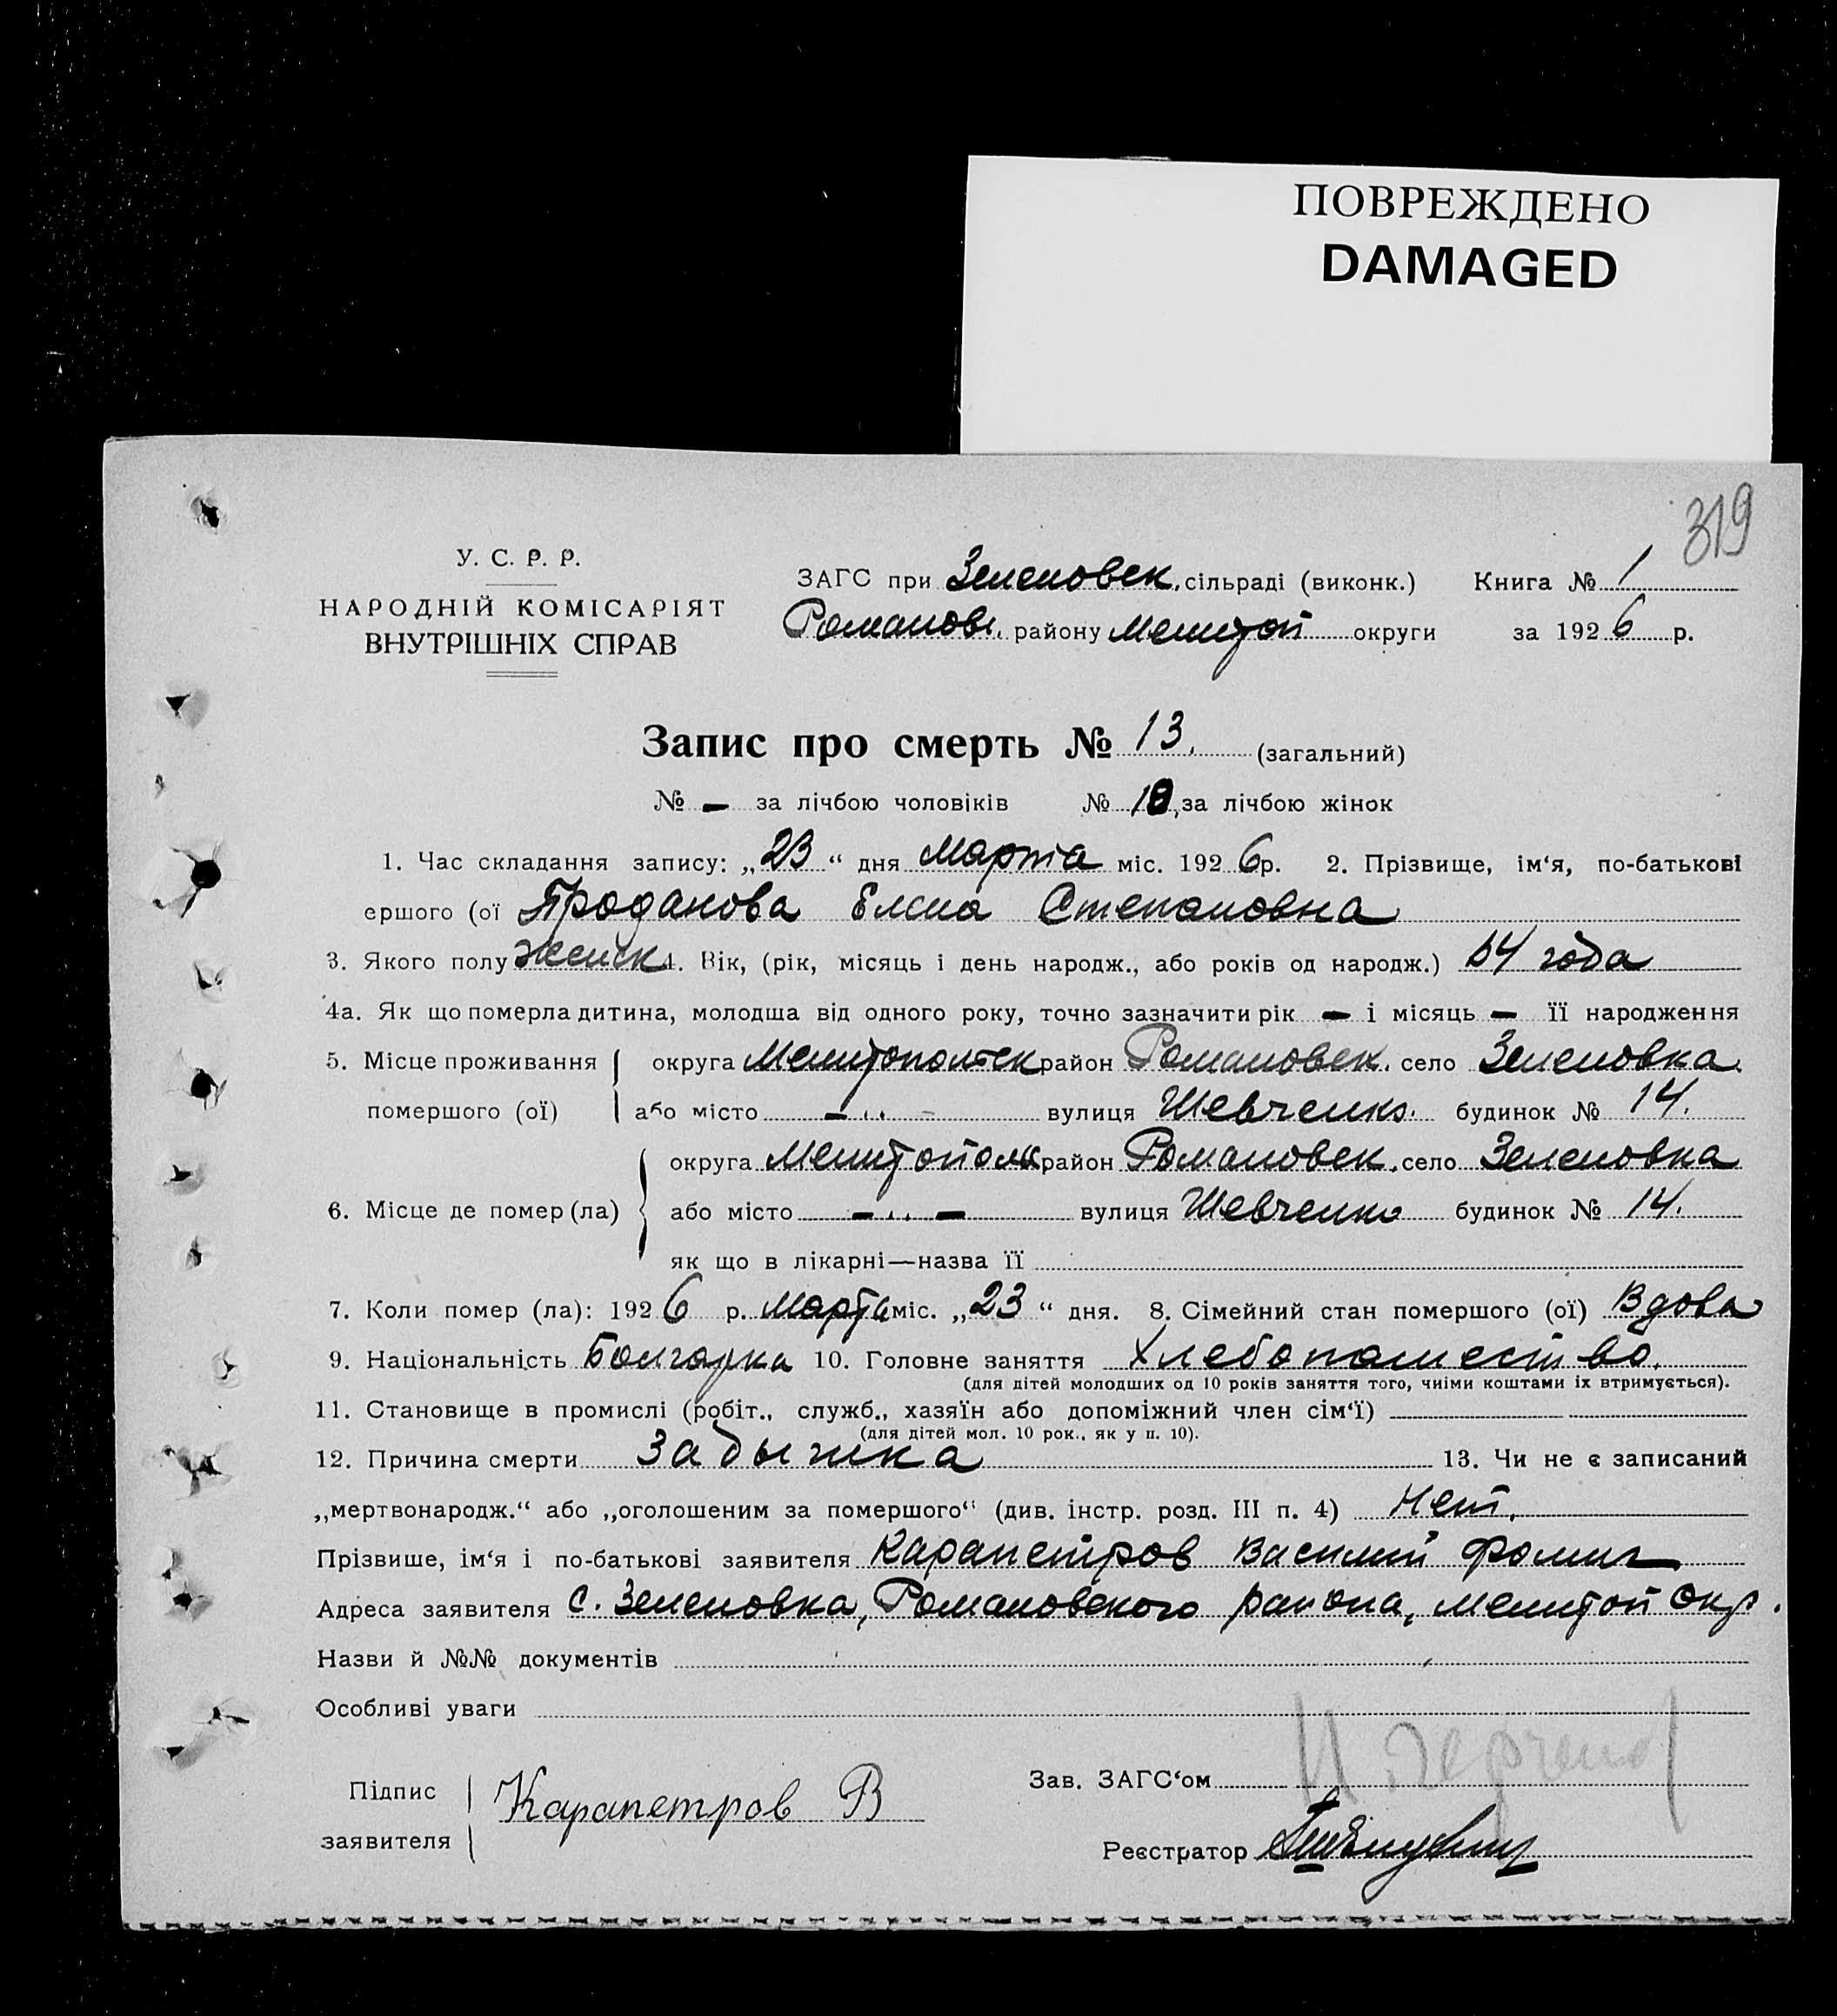 ПОВРЕЖДЕНО
DAMAGED
319
У. С. Р. Р.
НАРОДНІЙ КОМІСАРІЯТ
ВНУТРІШНІХ СПРАВ
ЗАГС при Зеленовск. сільраді (виконк.) Книга № 1
Романов. району Мелитоп округи за 1926 р.
Запис про смерть № 13. (загальний)
№ – за лічбою чоловіків № 10, за лічбою жінок
1. Час складання запису: „23“ дня Марта міс. 1926 р. 2. Прізвище, ім‘я, по-батькові
ершого (ої Проданова Елена Степановна
3. Якого полу женск 4. Вік, (рік, місяць і день народж., або років од народж.) 64 года
4а. Як що померла дитина, молодша від одного року, точно зазначити рік – і місяць – її народження
5. Місце проживання округа Мелитопольск район Романовск. село Зеленовка
помершого (ої) або місто – „ – вулиця Шевченко. будинок № 14.
округа Мелитопольск район Романовск. село Зеленовка
6. Місце де помер (ла) або місто – „ – вулиця Шевченко будинок № 14.
як що в лікарні—назва її
7. Коли помер (ла): 1926 р. Марта міс. „23“ дня. 8. Сімейний стан помершого (ої) Вдова
9. Національність Болгарка 10. Головне заняття Хлебопашество.
(для дітей молодших од 10 років заняття того, чиїми коштами їх втримується).
11. Становище в промислі (робіт., служб., хазяїн або допоміжний член сім‘ї)
(для дітей мол. 10 рок., як у п. 10).
12. Причина смерти Задышка 13. Чи не є записаний
„мертвонародж.“ або „оголошеним за помершого“ (див. інстр. розд. III п. 4) Нет.
Прізвише, ім‘я і по-батькові заявителя Карапетров Василий Фомич
Адреса заявителя с. Зеленовка, Романовского района, Мелитоп окр.
Назви й №№ документів
Особливі уваги
Зав. ЗАГС‘ом
Підпис заявителя Карапетров В
Реєстратор